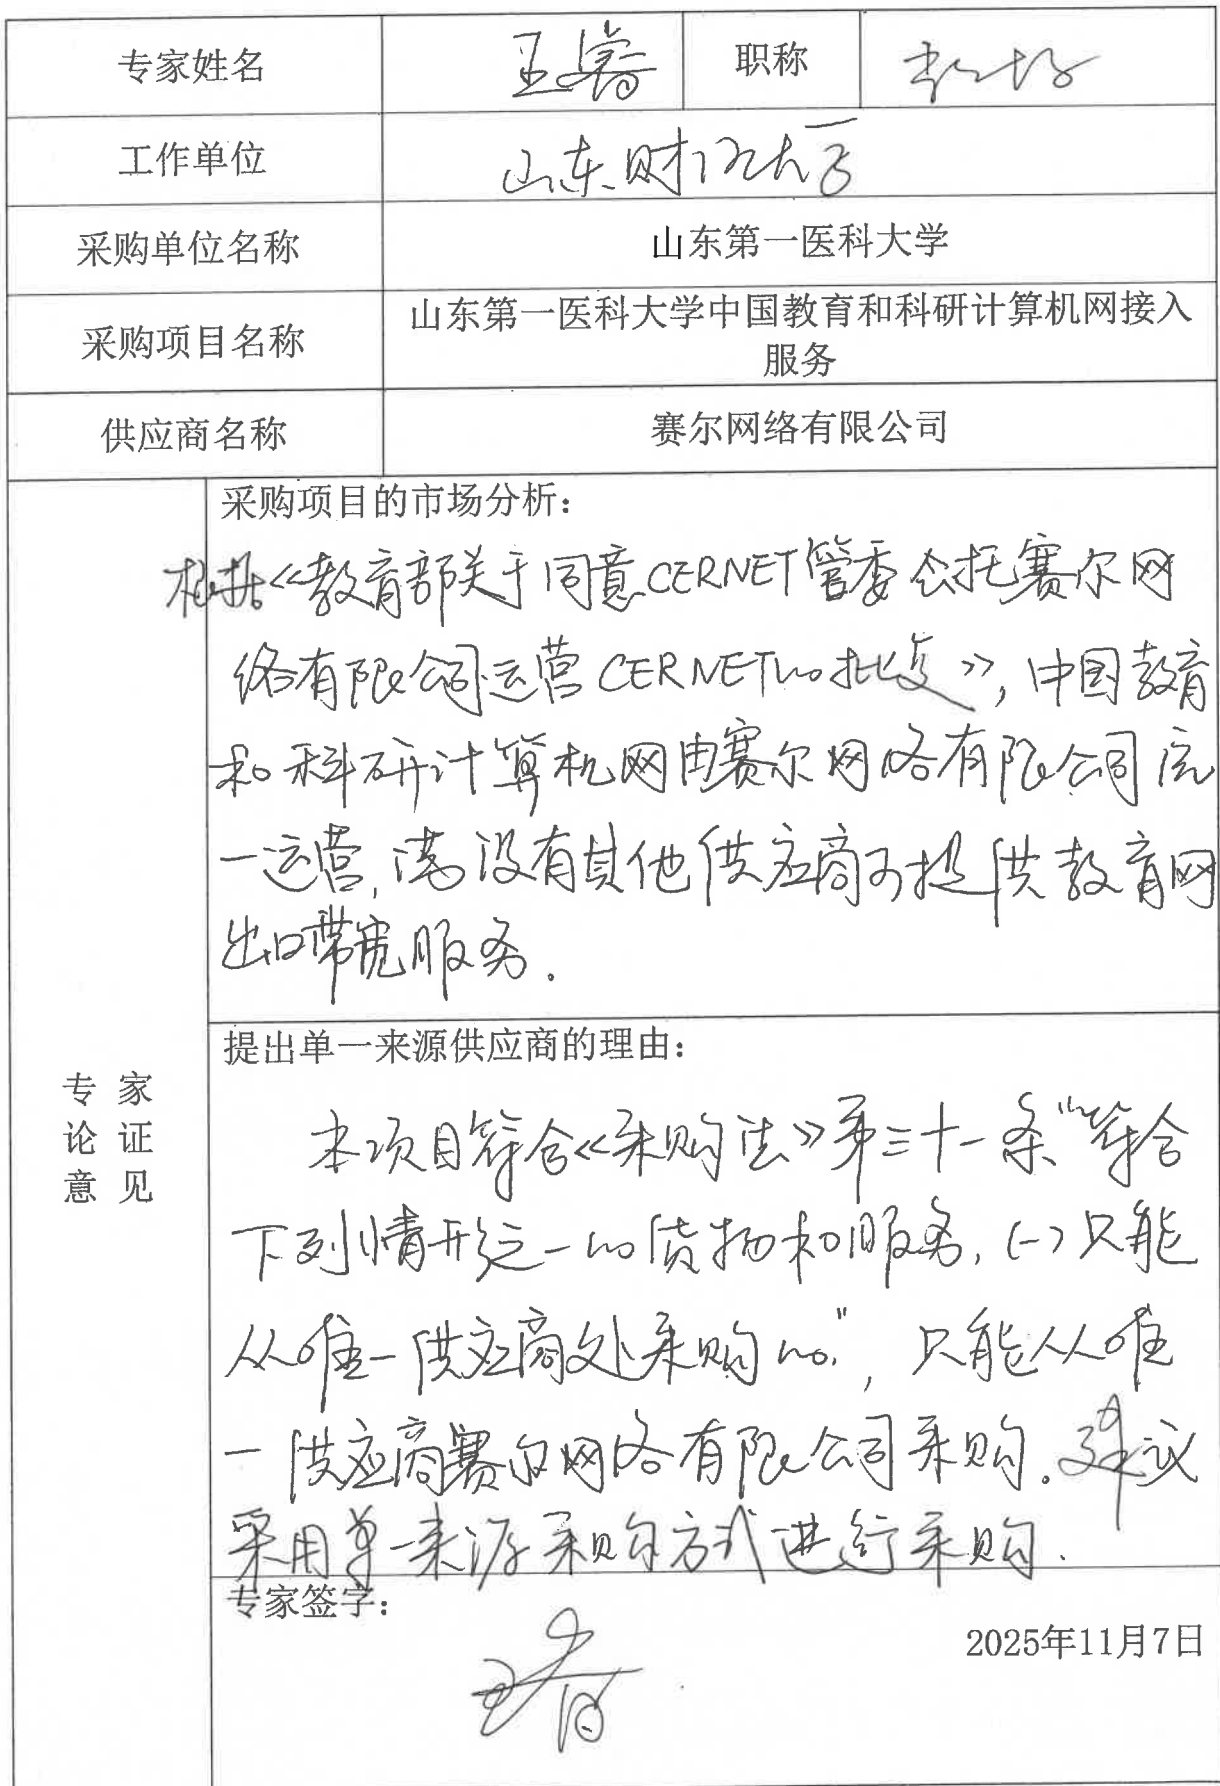 专家姓名 王睿 职称 教授
工作单位 山东财经大学
采购单位名称 山东第一医科大学
采购项目名称 山东第一医科大学中国教育和科研计算机网接入
服务
供应商名称 赛尔网络有限公司
采购项目的市场分析：
根据《教育部关于同意CERNET管委会托赛尔网
络有限公司运营CERNET的批复》，中国教育
和科研计算机网由赛尔网络有限公司统
一运营，没有其他供应商可提供教育网
出口带宽服务.
专 家
论 证
意 见
提出单一来源供应商的理由：
本项目符合《采购法》第三十一条“符合
下列情形之一的货物和服务，(一)只能
从唯一供应商处采购的.”，只能从唯
一供应商赛尔网络有限公司采购。建议
采用单一来源采购方式进行采购.
专家签字：
王睿
2025年11月7日